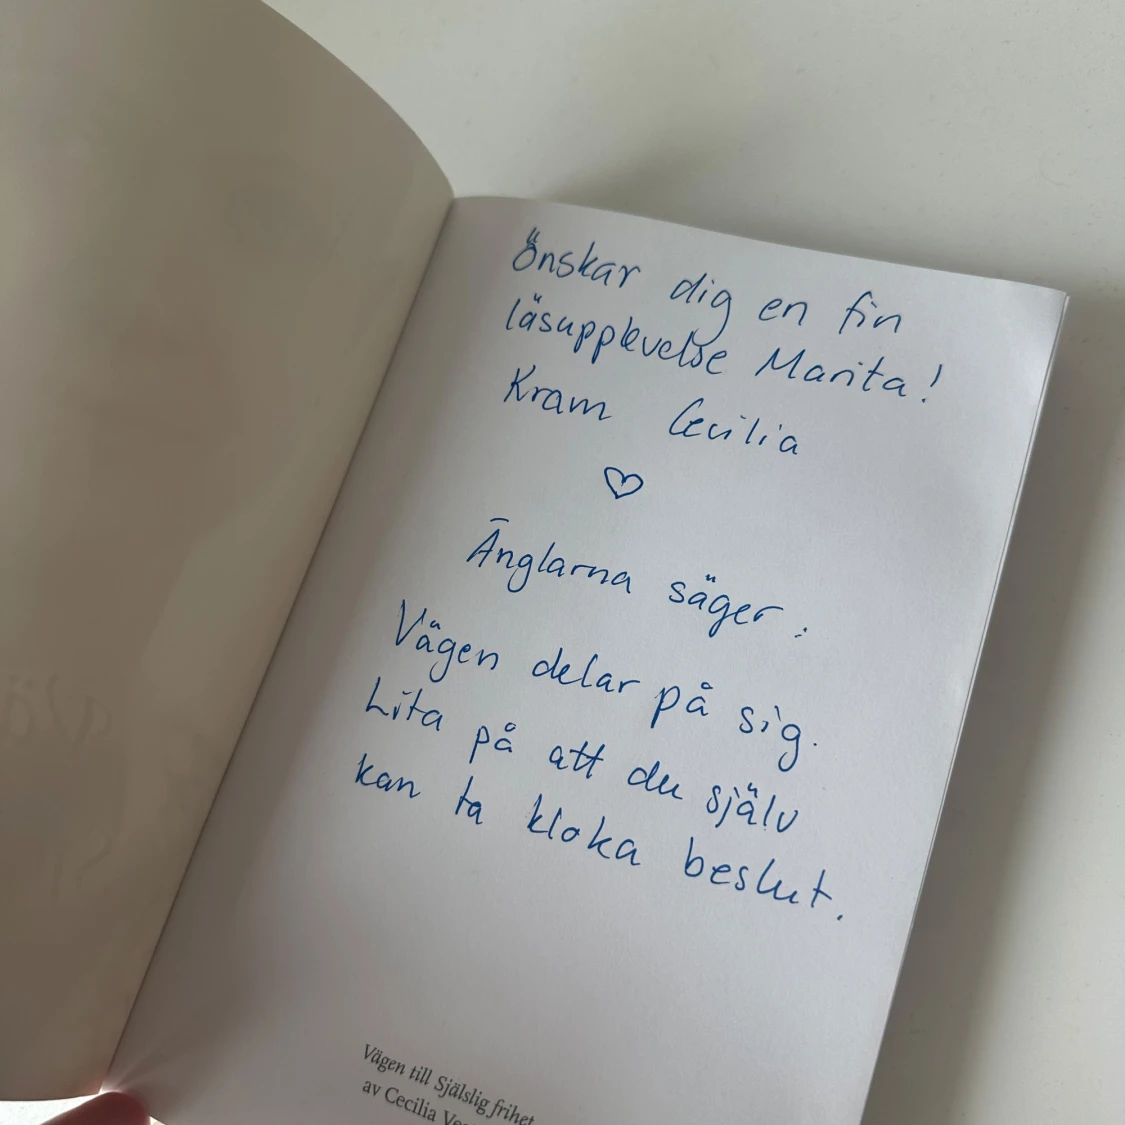 Önskar dig en fin
läsupplevelse Marita!
Kram Cecilia
♡
Änglarna säger:
Vägen delar på sig.
Lita på att du själv
kan ta kloka beslut.
Vägen till Själslig frihet
av Cecilia